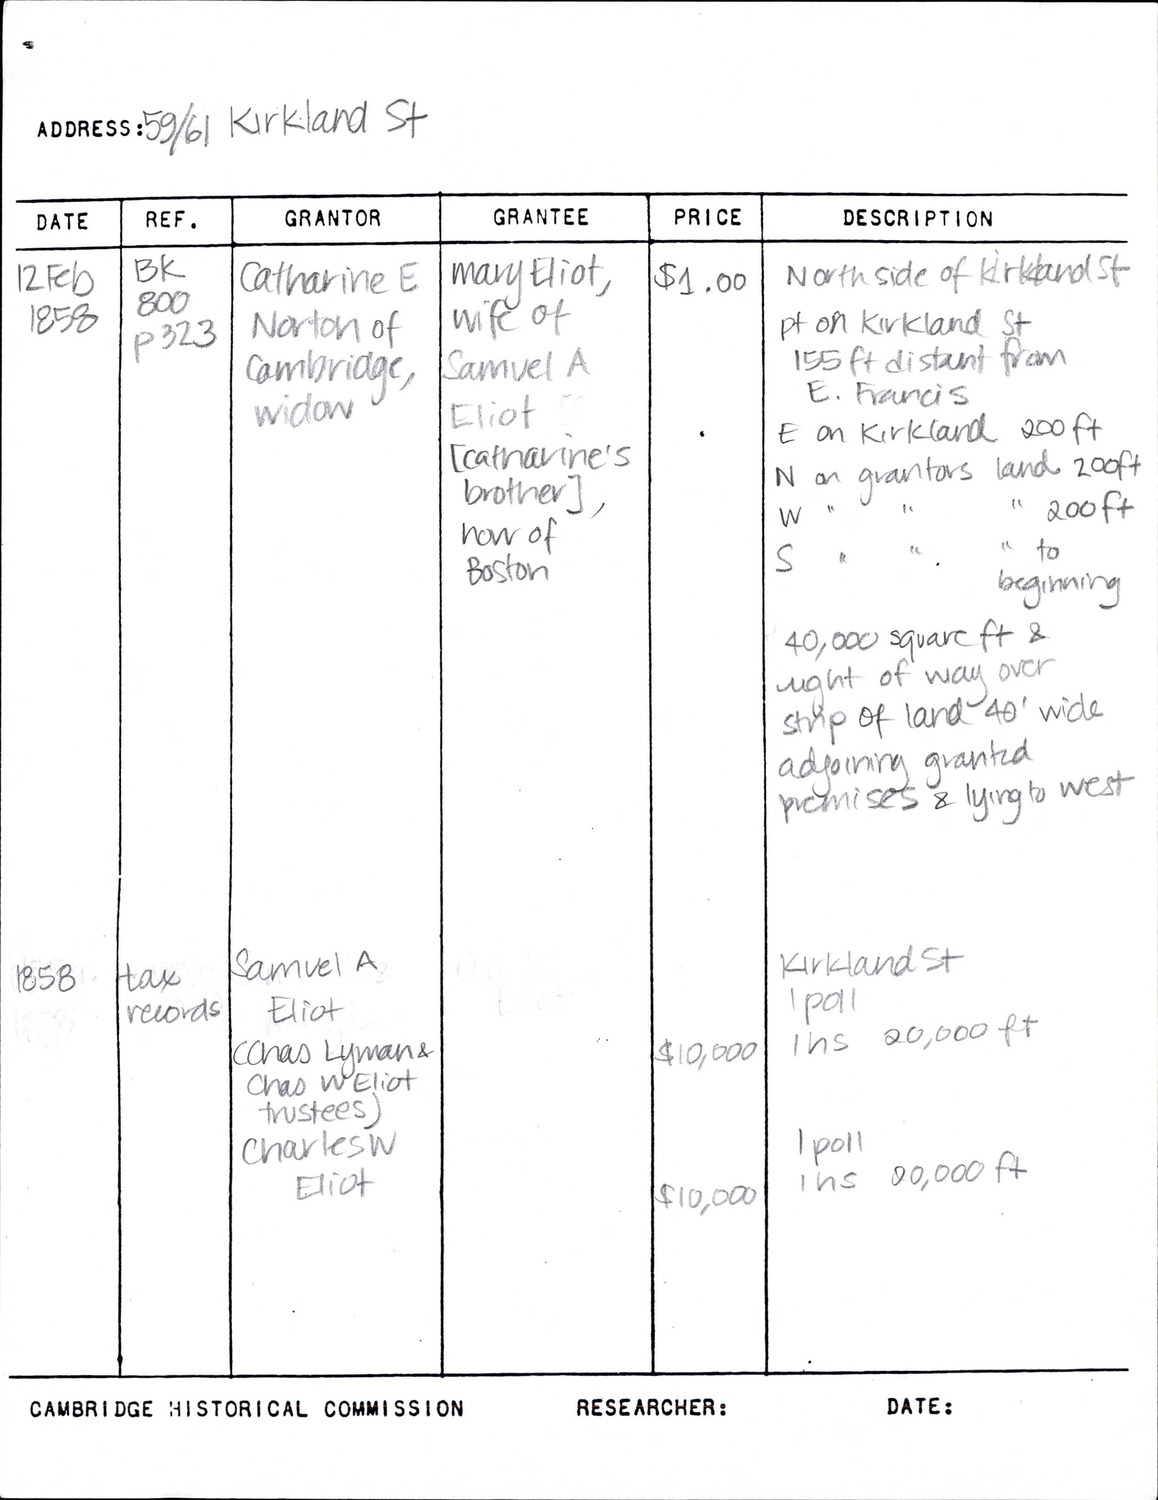 ADDRESS: 59/61 Kirkland St
DATE REF. GRANTOR GRANTEE PRICE DESCRIPTION
12 Feb
1858
BK
800
p323
Catharine E
Norton of
Cambridge,
widow
Mary Eliot,
wife of
Samuel A
Eliot
[Catharine's
brother],
now of
Boston
$1.00
North side of Kirkland St
pt on Kirkland St
155 ft distant from
E. Francis
E on Kirkland 200 ft
N on grantors land 200ft
W " " " 200 ft
S " " " to
beginning
40,000 square ft &
right of way over
strip of land 40' wide
adjoining granted
premises & lying to west
1858
tax
records
Samuel A
Eliot
(Chas Lyman &
Chas W Eliot
trustees)
Charles W
Eliot
$10,000
$10,000
Kirkland St
1 poll
1 hs 20,000 ft
1 poll
1 hs 20,000 ft
CAMBRIDGE HISTORICAL COMMISSION RESEARCHER: DATE: